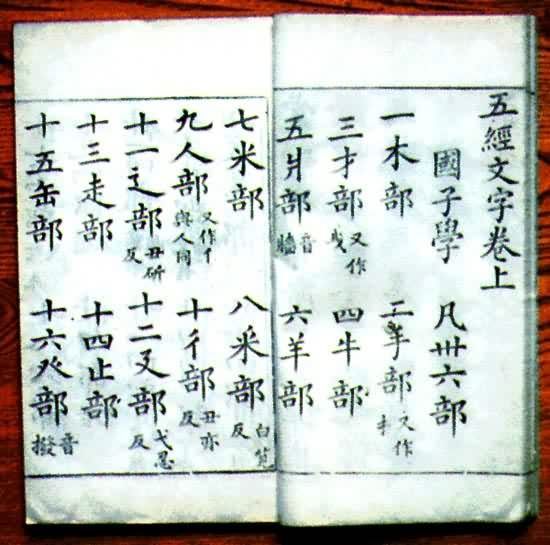 五經文字卷上
國子學 凡卅六部
一木部 二手部又作扌
三才部又作 四牛部
五爿部音牆 六羊部
七米部 八釆部白莧反
九人部又作亻與人同 十彳部丑亦反
十一辶部丑斫反 十二廴部弋忍反
十三走部 十四止部
十五缶部 十六癶部音撥